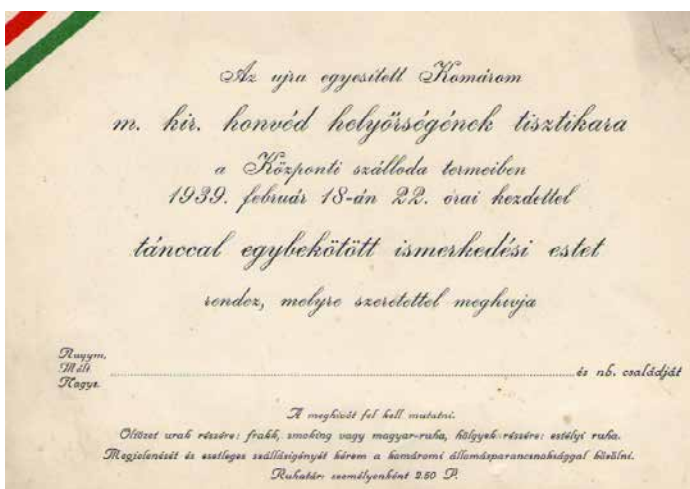 Az ujra egyesitett Komárom
m. kir. honvéd helyőrségének tisztikara
a Központi szálloda termeiben
1939. február 18-án 22. órai kezdettel
tánccal egybekötött ismerkedési estet
rendez, melyre szeretettel meghivja
Nagym.
Mélt.
Nagys. és nb. családját
A meghivót fel kell mutatni.
Öltözet urak részére: frakk, smoking vagy magyar-ruha, hölgyek részére: estélyi ruha.
Megjelenését és esetleges szállásigényét kérem a komáromi állomásparancsnoksággal közölni.
Ruhatár: személyenként 2.50 P.